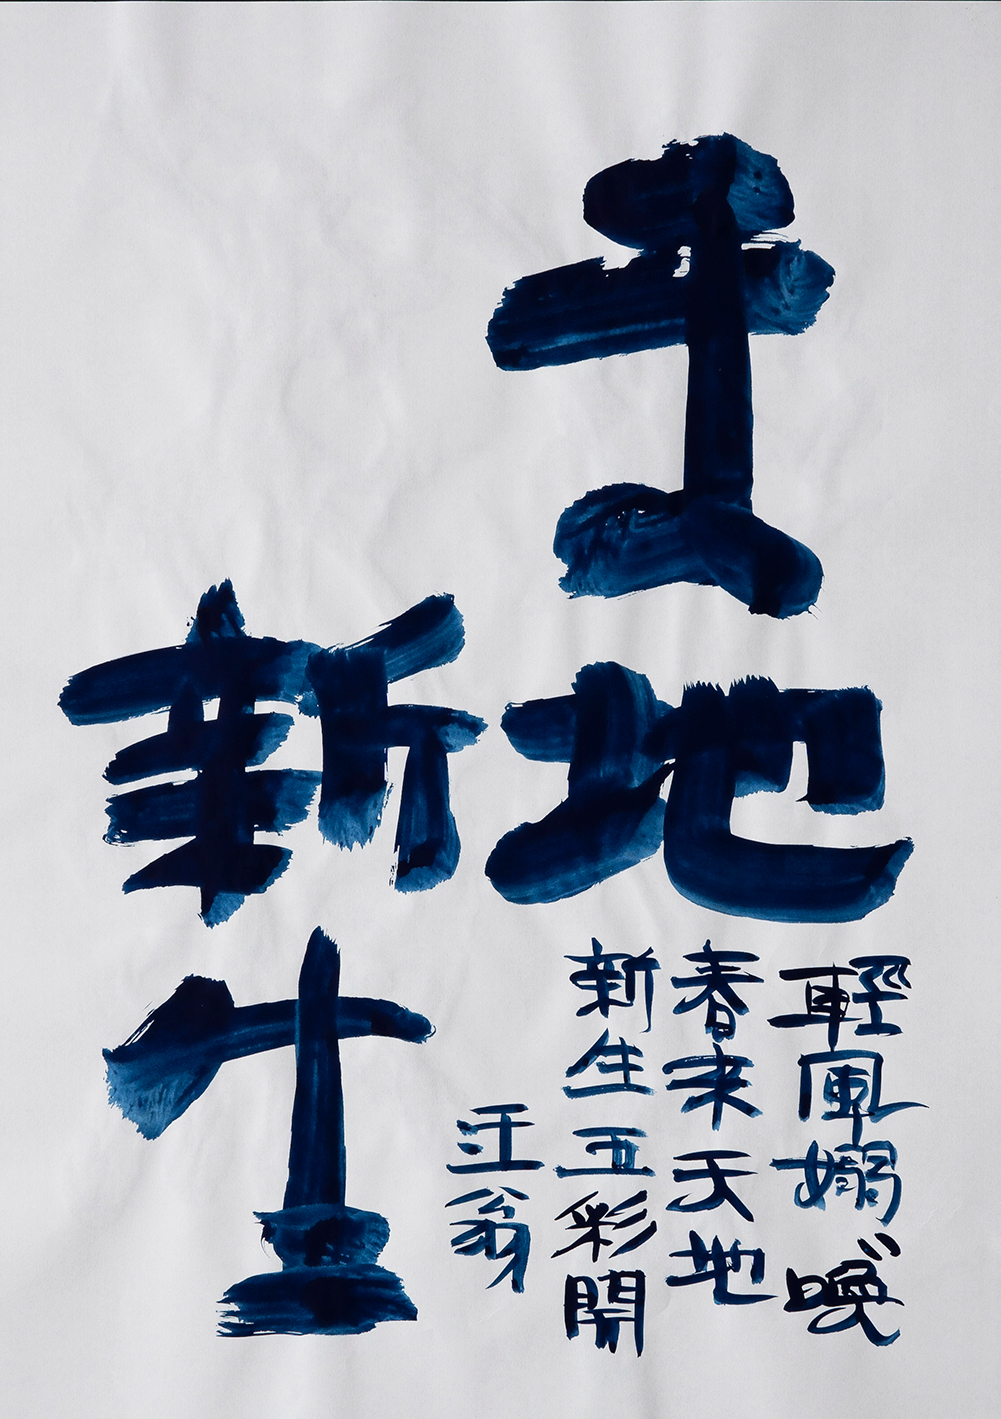 天地
新生
輕風嫋〻喚
春来天地
新生五彩開
王翁